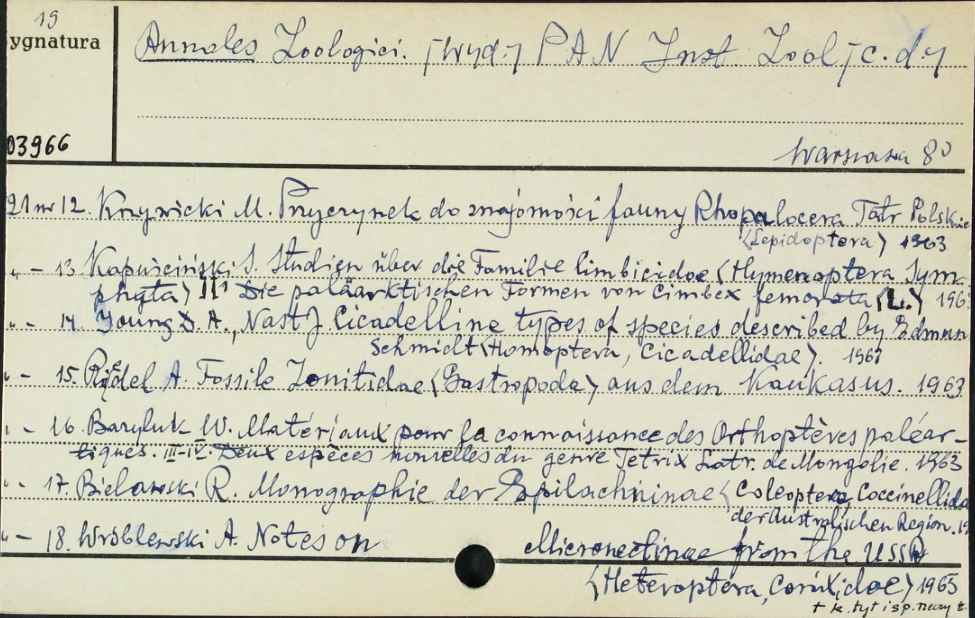 19
ygnatura
Annales Zoologici. [Wyd.] PAN Inst. Zool [c.d.]
03966
Warszawa 8°
21 nr 12. Krzywicki M. Przyczynek do znajomości fauny Rhopalocera Tatr Polskic
(Lepidoptera) 1963
„ - 13. Kapuściński S. Studien über die Familie Cimbicidae (Hymenoptera Sym-
phyta) III Die paläarktischen Formen von Cimbex femorata (L.) 196
„ - 14. Young D. A., Nast J. Cicadelline types of species described by Edmun
Schmidt (Homoptera, Cicadellidae). 1963
„ - 15. Riedel A. Fossile Zonitidae (Gastropoda) aus dem Kaukasus. 1963
„ - 16. Bazyluk W. Matériaux pour la connaissance des Orthoptères paléar-
tiques. III-IV. Deux espèces nouvelles du genre Tetrix Latr. de Mongolie. 1963
„ - 17. Bielawski R. Monographie der Epilachninae (Coleoptera, Coccinellida
der Australischen Region. 19
„ - 18. Wróblewski A. Notes on Micronectinae from the USSR
(Heteroptera, Corixidae) 1963
+ k. tyt i sp. rzeczy